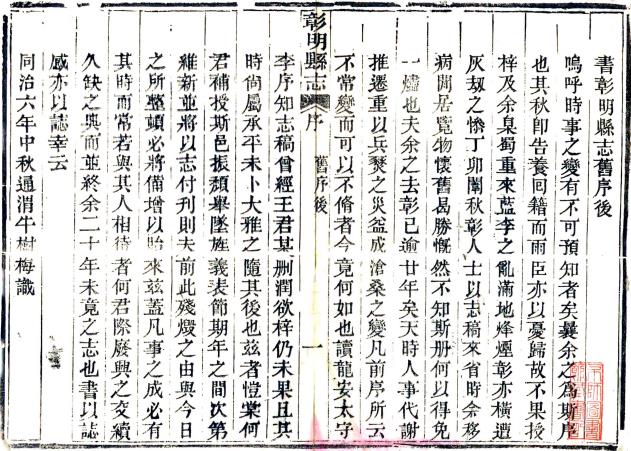 書彰明縣志舊序後
嗚呼時事之變有不可預知者矣曩余之爲斯序
也其秋卽告養回籍而雨臣亦以憂歸故不果授
梓及余臬蜀重來藍李之亂滿地烽煙彰亦橫遭
灰刼之慘丁卯闈秋彰人士以志稿來省時余移
病閒居覽物懷舊曷勝慨然不知斯册何以得免
一燼也夫余之去彰已逾廿年矣天時人事代謝
推遷重以兵燹之災益成滄桑之變凡前序所云
不常變而可以不脩者今竟何如也讀龍安太守
彰明縣志
序
舊序後
一
李序知志稿曾經王君某刪潤欲梓仍未果且其
時尚屬承平未卜大雅之隨其後也茲者愷棠何
君補授斯邑振頽舉墜旌義表節期年之間次第
維新並將以志付刊則夫前此殘燬之由與今日
之所整頓必將備增以貽來茲蓋凡事之成必有
其時而常若與其人相待者何君際廢興之交續
久缺之典而並終余二十年未竟之志也書以誌
感亦以誌幸云
同治六年中秋通渭牛樹梅識